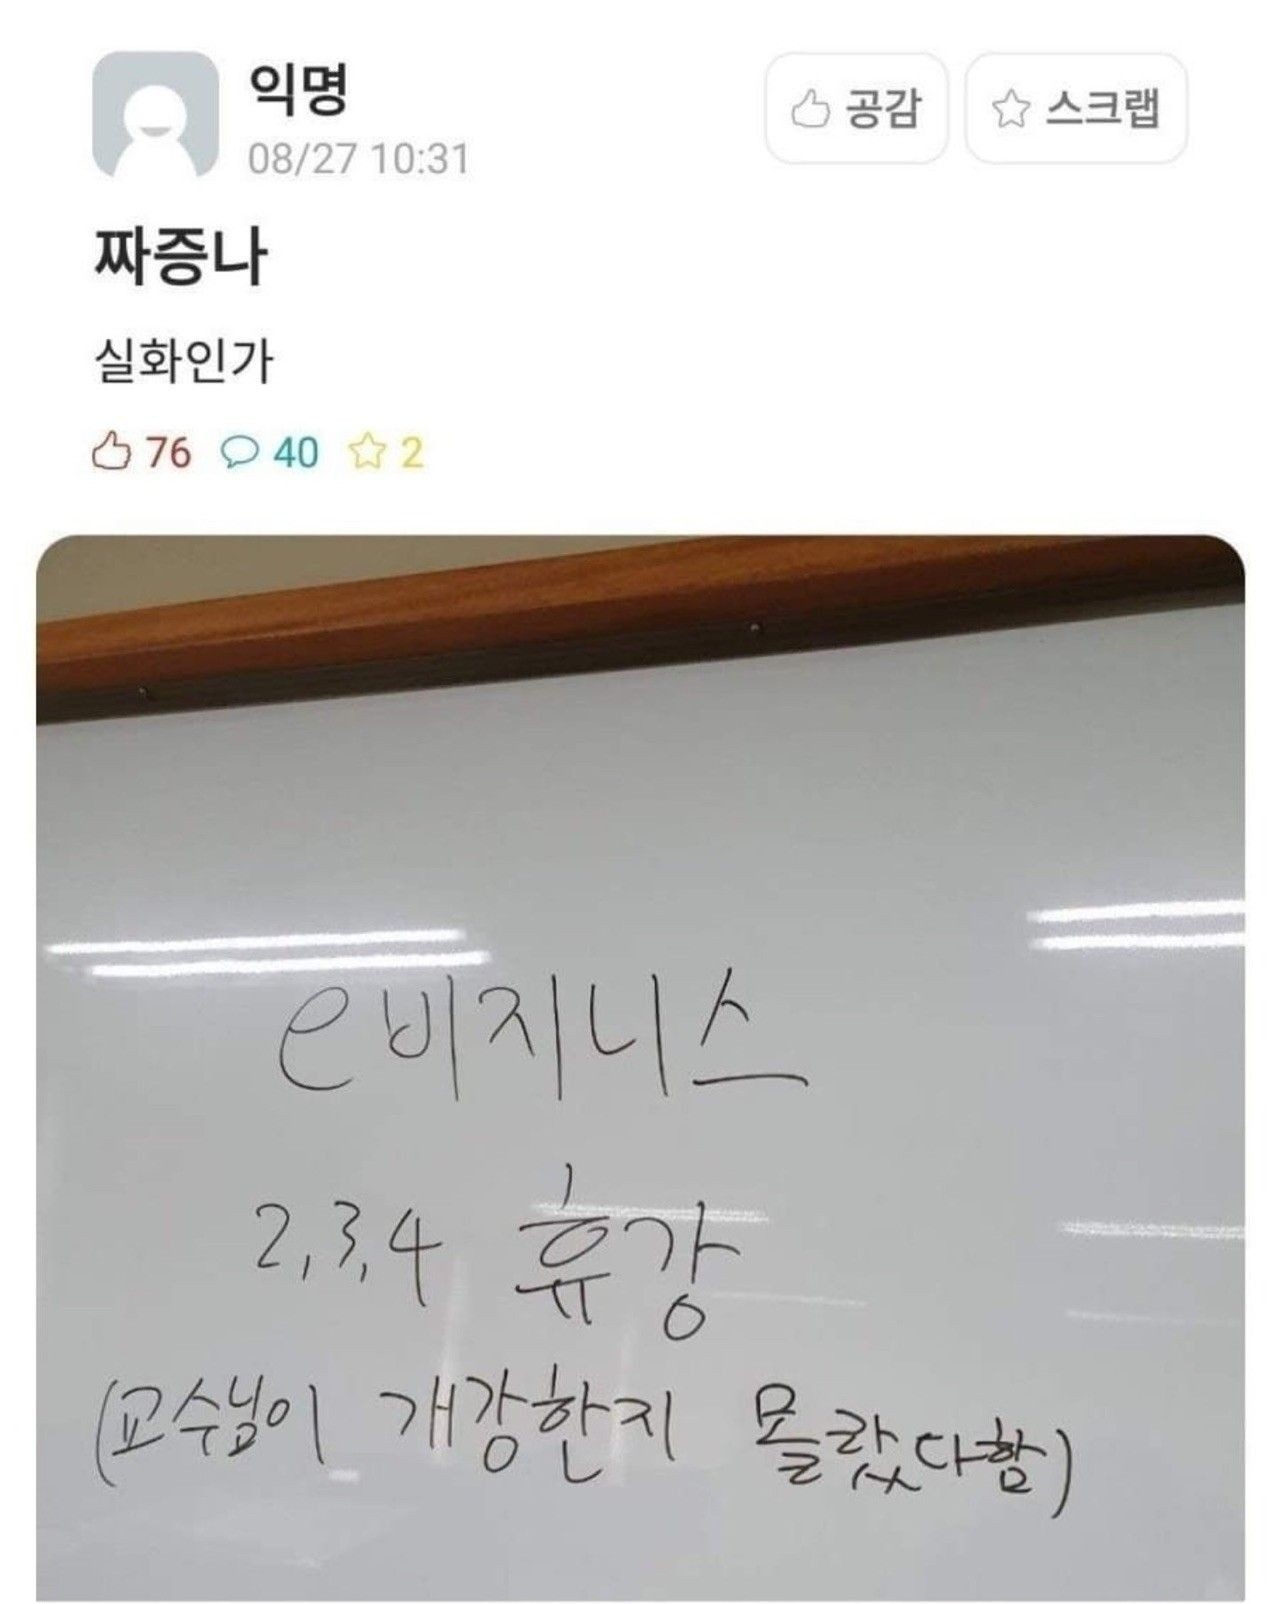 익명
08/27 10:31
공감
스크랩
짜증나
실화인가
76 40 2
e비지니스
2,3,4 휴강
(교수님이 개강한지 몰랐다함)